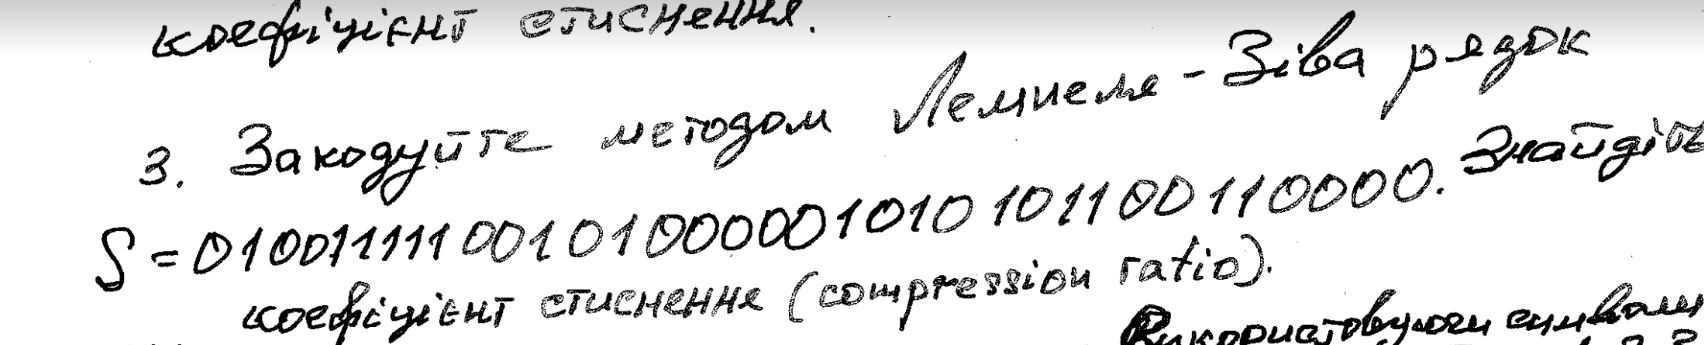 коефіцієнт стиснення.
3. Закодуйте методом Лемпеля-Зіва рядок
S = 010011111001010000001010101100110000. Знайдіть
коефіцієнт стиснення (compression ratio).
Використовуючи символи